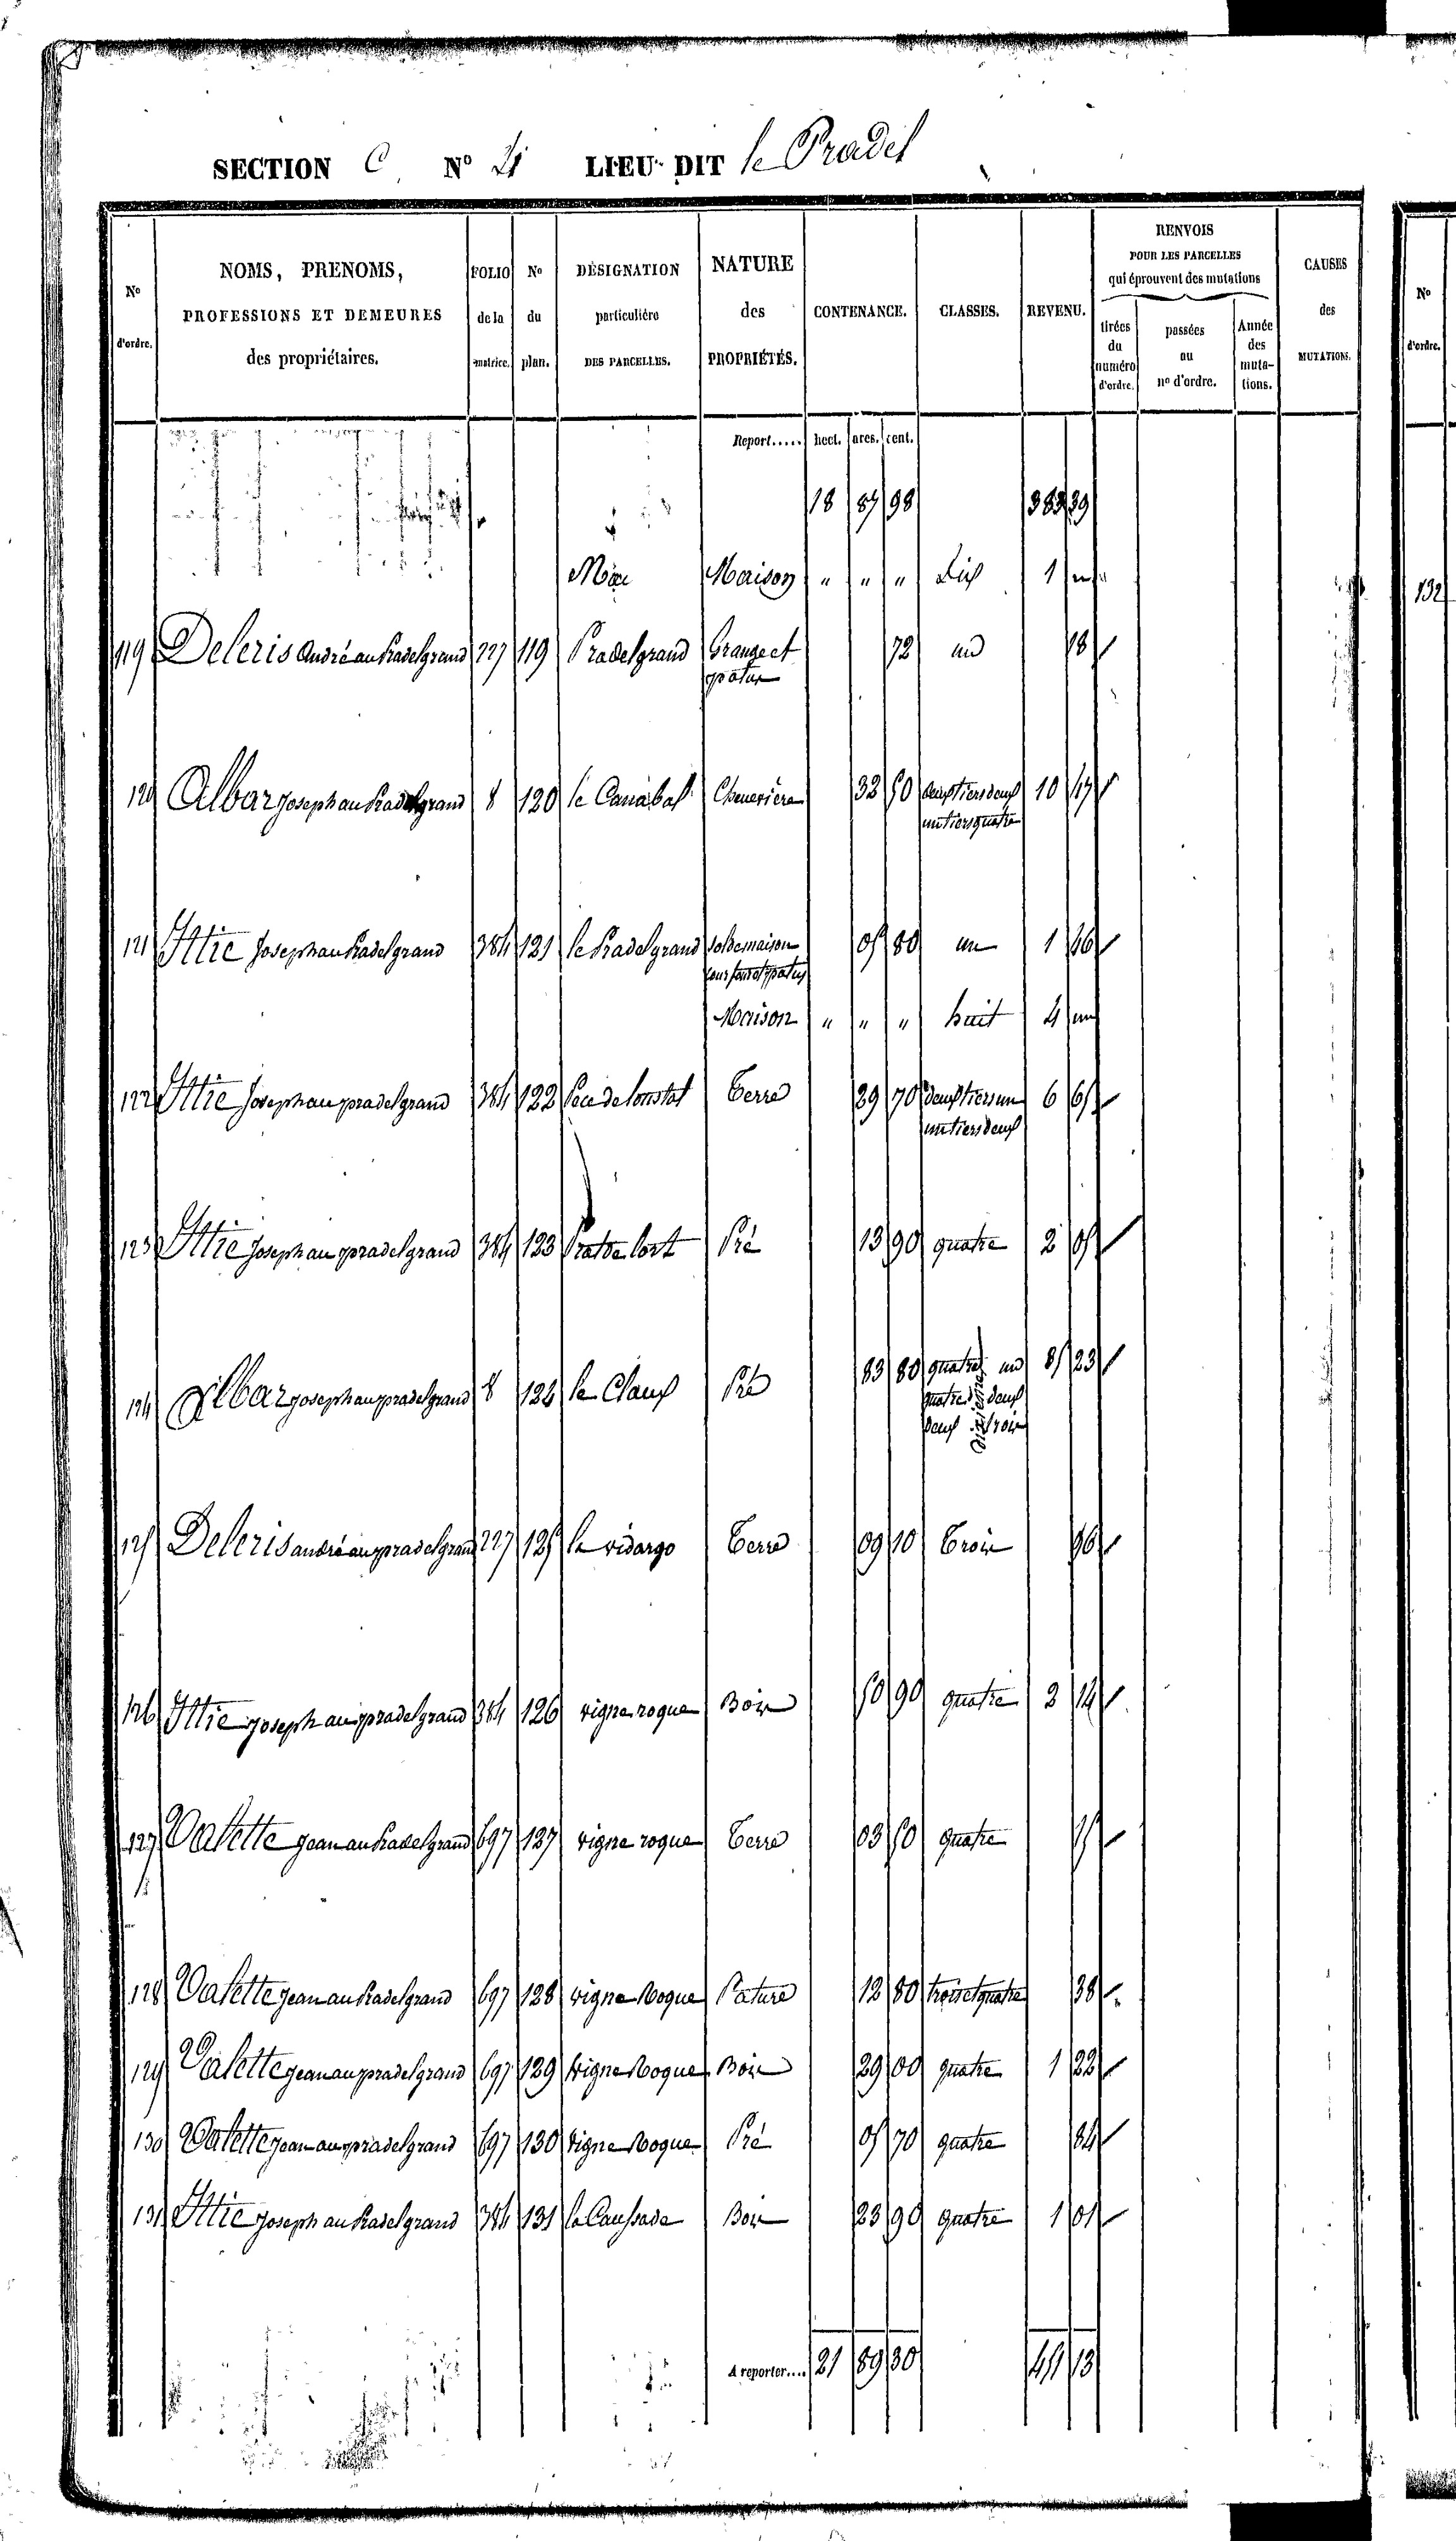 SECTION C N° 21 LIEU-DIT le Pradel
N° d'ordre.
NOMS, PRENOMS, PROFESSIONS ET DEMEURES des propriétaires.
FOLIO de la matrice.
N° du plan.
DÉSIGNATION particulière DES PARCELLES.
NATURE des PROPRIÉTÉS.
CONTENANCE.
CLASSES.
REVENU.
RENVOIS POUR LES PARCELLES qui éprouvent des mutations
tirées du numéro d'ordre.
passées au n° d'ordre.
Année des mutations.
CAUSES des MUTATIONS.
N° d'ordre.
Report..... hect. ares. cent.
18 87 98 383 39
Maison " " " Dix 1
119 Deleris André au Pradelgrand 227 119 Pradelgrand Grange et 72 un 18
patus
120 Albar Joseph au Pradelgrand 8 120 le Canabal Cheneviere 32 50 deux tiers deux 10 47
un tiers quatre
121 Ittie Joseph au Pradelgrand 384 121 le Pradelgrand sol de maison 05 80 un 1 46
cour four et patus
Maison " " " huit 4
122 Ittie Joseph au pradelgrand 384 122 Terre 29 70 deux tiers un 6 65
un tiers deux
123 Ittie Joseph au pradelgrand 384 123 Prat de lort Pré 13 90 quatre 2 05
124 Albar joseph au pradelgrand 8 124 le Claux Pré 83 80 quatre un 23
quatre dixiemes deux
deux trois
125 Deleris andré au pradelgrand 227 125 le vidargo Terre 09 10 Trois 96
126 Ittie joseph au pradelgrand 384 126 vigne roque Bois 50 90 quatre 2 14
127 Valette jean au Pradelgrand 697 127 vigne roque Terre 03 50 quatre 15
128 Valette jean au Pradelgrand 697 128 vigne Roque Pature 12 80 trois et quatre 38
129 Valette jean au pradelgrand 697 129 vigne Roque Bois 29 00 quatre 1 22
130 Valette jean au pradelgrand 697 130 vigne Roque Pré 05 70 quatre 84
131 Ittie joseph au Pradelgrand 384 131 la Caussade Bois 23 90 quatre 1 01
A reporter.... 21 89 30 13
132